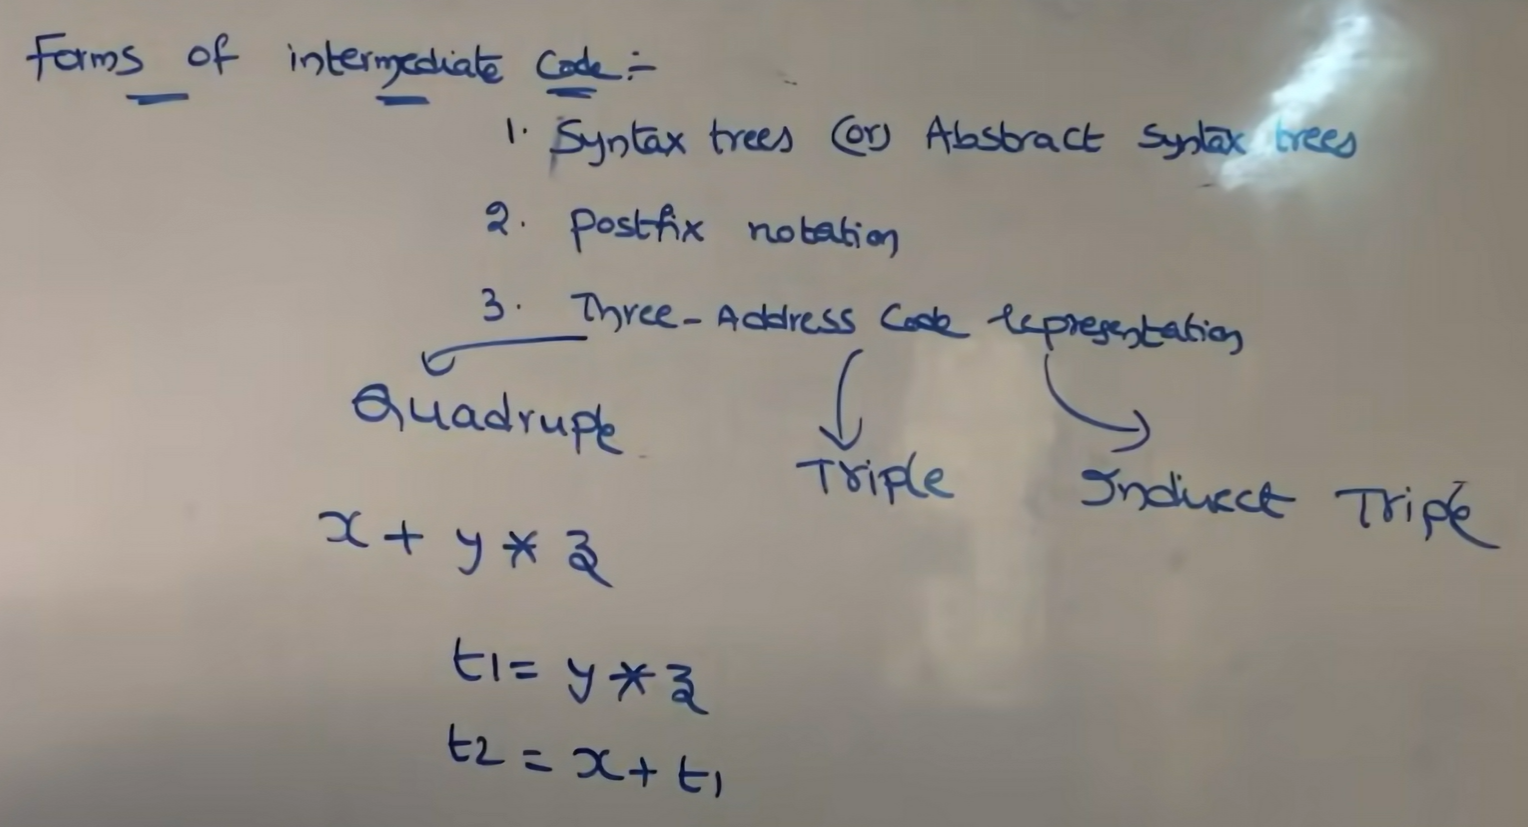 Forms of intermediate Code:-
1. Syntax trees (or) Abstract Syntax trees
2. Postfix notation
3. Three-Address Code representation
Quadruple Triple Indirect Triple
x + y * z
t1 = y * z
t2 = x + t1